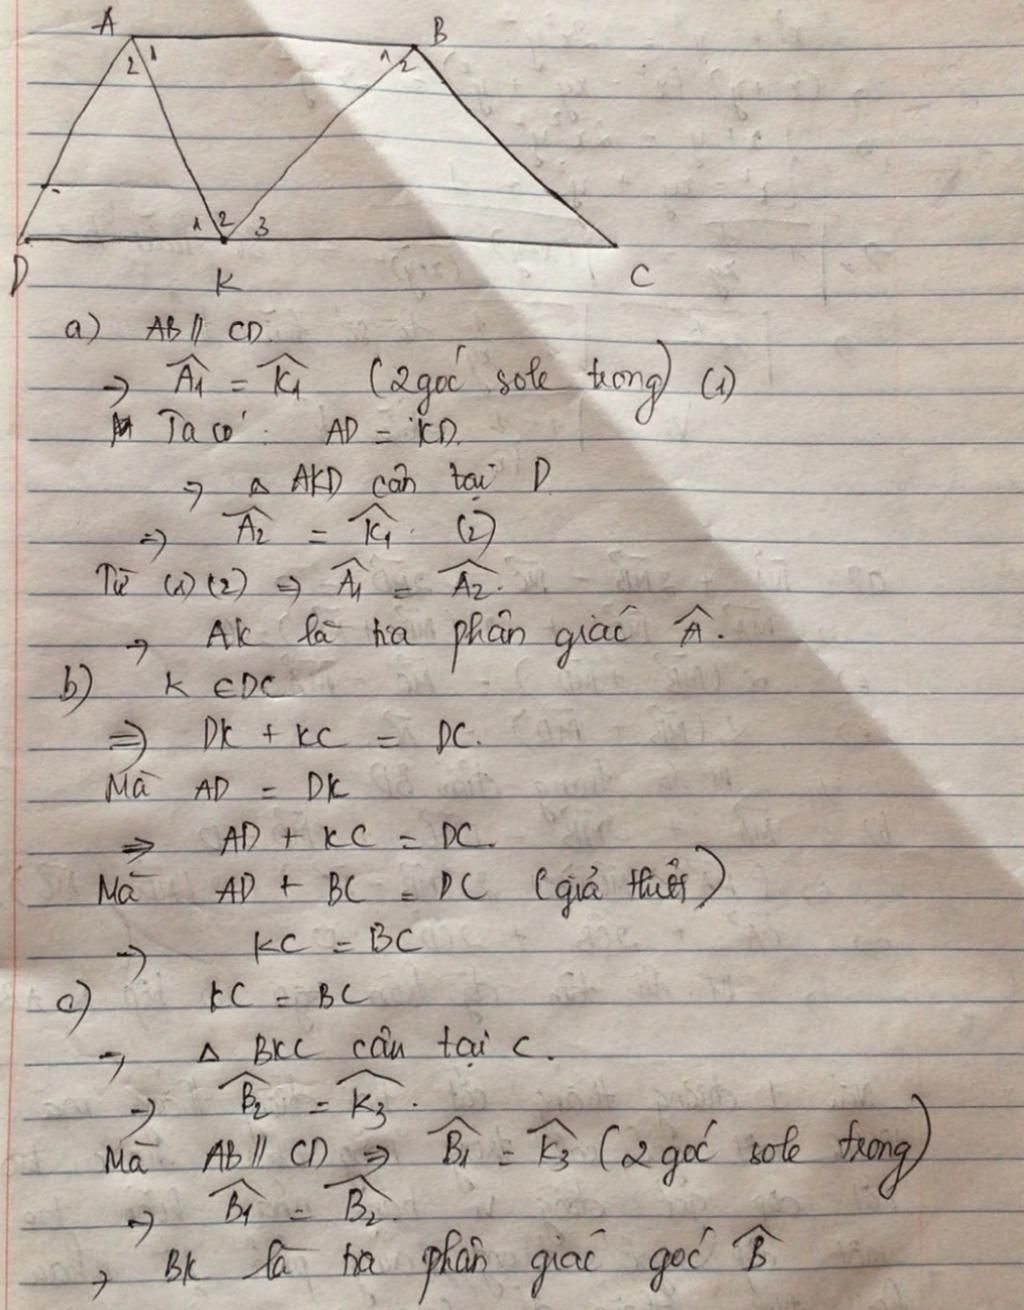 A B
2 1 1 2
1 2 3
D K C
a) AB // CD.
→ Â1 = K̂1 (2 góc sole trong) (1)
Ta có: AD = KD.
→ △ AKD cân tại D
⇒ Â2 = K̂1. (2)
Từ (1) (2) ⇒ Â1 = Â2.
→ AK là tia phân giác Â.
b) K ∈ DC
⇒ DK + KC = DC.
Mà AD = DK
⇒ AD + KC = DC.
Mà AD + BC = DC (giả thiết)
→ KC = BC
c) KC = BC
→ △ BKC cân tại C.
→ B̂2 = K̂3.
Mà AB // CD ⇒ B̂1 = K̂3 (2 góc sole trong)
→ B̂1 = B̂2.
→ BK là tia phân giác góc B̂